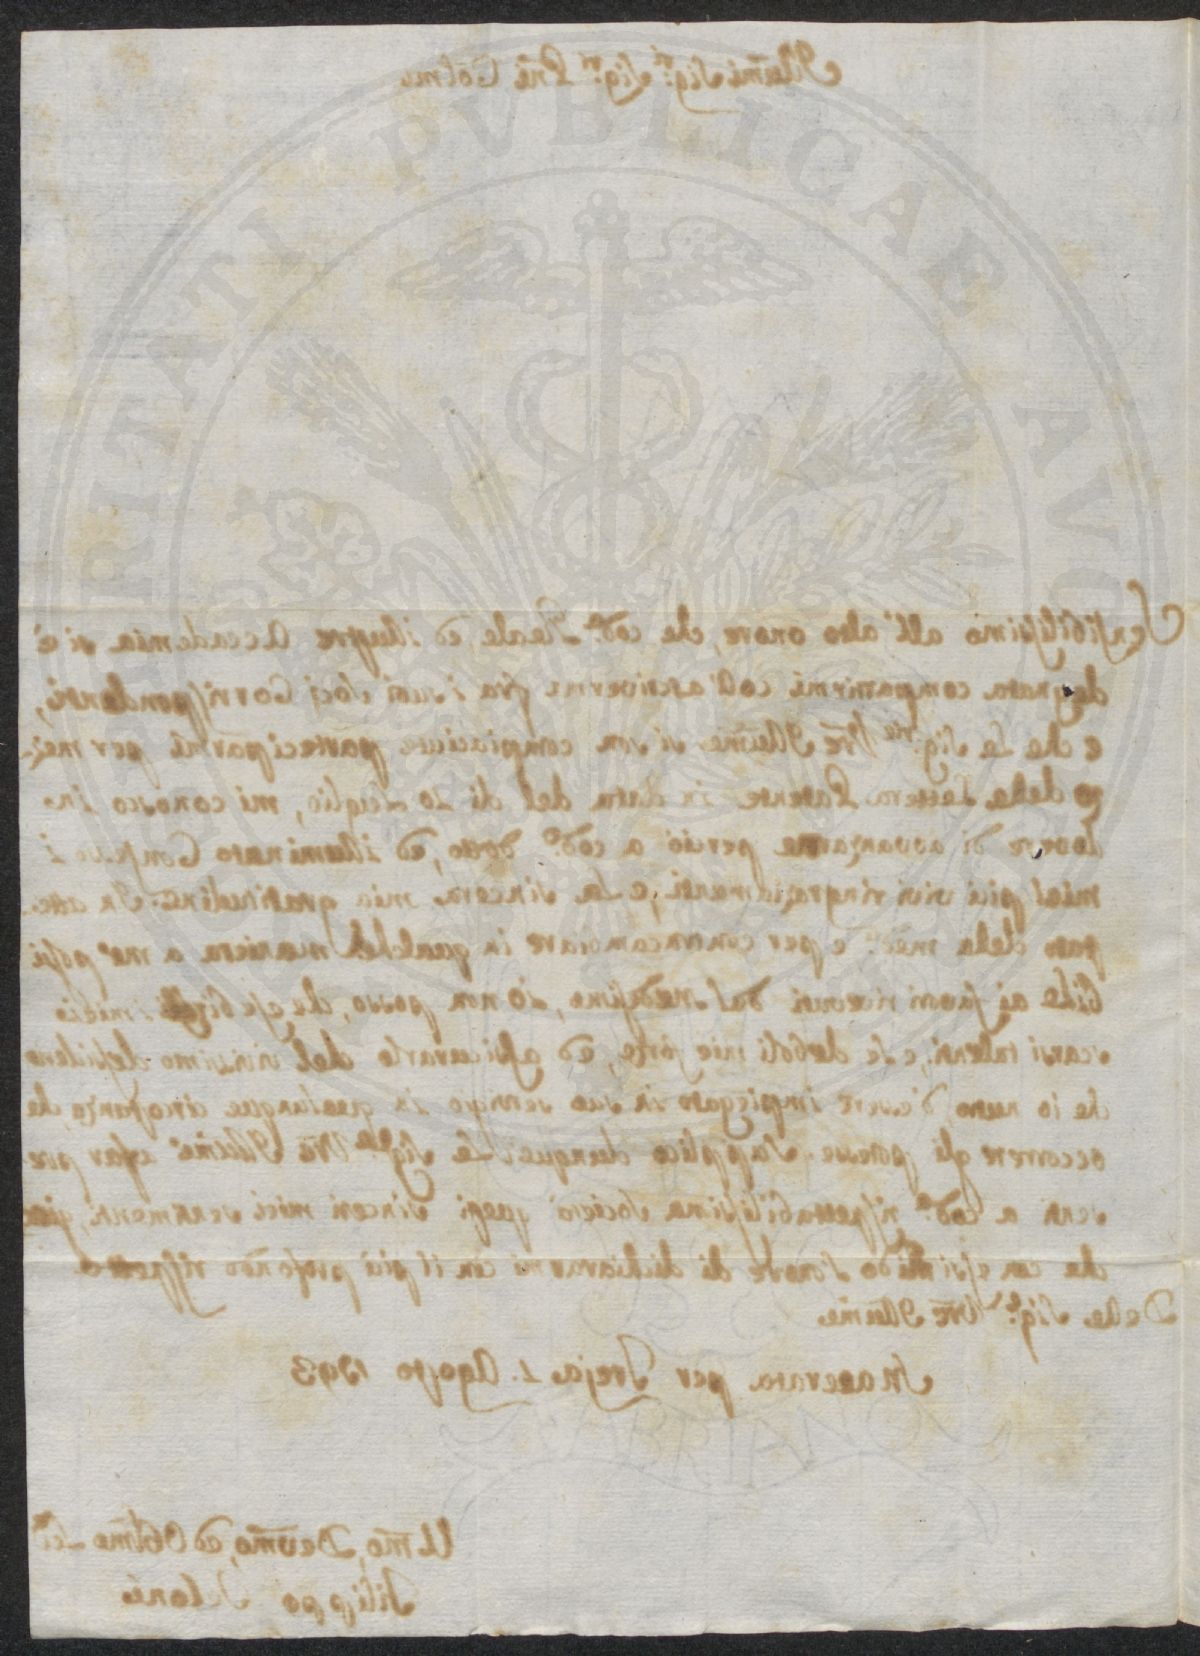 Illmi Sigri Sigri Pni Colmi
Sensibilissimo all'alto onore, che codª Reale, ed illustre Accademia si è
degnata compartirmi coll'ascrivermi fra i suoi Socj Corrispondenti,
e che le Sigrie Vre Illme si son compiaciute parteciparmi per mez-
zo della Lettera Patente in data del dì 20 Luglio, mi conosco in
dovere di avvanzarne perciò a codº dotto, ed illuminato Consesso i
miei più vivi ringraziamenti, e la sincera mia gratitudine. In atte-
stato della medª e per contracambiare in qualche maniera a me possi
bile ai favori ricevuti dal medesimo, io non posso, che esibirgli i miei
scarsi talenti, e le deboli mie forze, ed assicurarlo del vivissimo desiderio
che io nutro d'essere impiegato in suo servigio in qualunque circostanza, che
occorrere gli potesse. Supplico dunque le Sigrie Vre Illme a far pre-
senti a codª rispettabilissima Società questi sinceri miei sentimenti, già
che con essi mi dò l'onore di dichiararmi con il più profondo rispetto
Delle Sigrie Vre Illme
Macerata per Treja 1. Agosto 1793
Umo, Devmo, ed Obblmo
Filippo
SPERITATI PVBLICAE AVC
FABRIANO